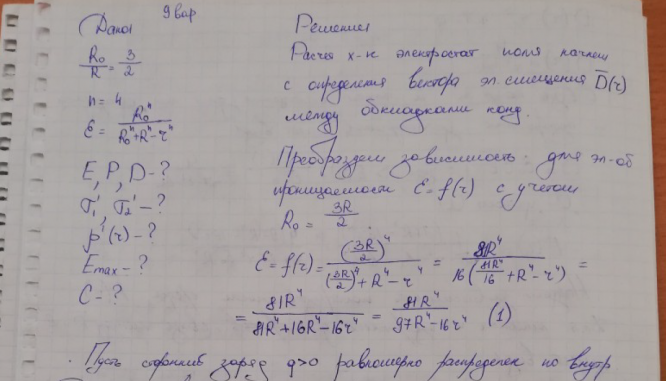 9 вар
Дано:
R₀/R = 3/2
n = 4
ε = R₀ⁿ/(R₀ⁿ+Rⁿ-rⁿ)
E, P, D - ?
σ₁', σ₂' - ?
ρ'(r) - ?
Emax - ?
C - ?
Решение
Расчет х-к электростат поля начнем
с определения вектора эл. смещения D̄(r)
между обкладками конд.
Преобразуем зависимость для эл-об
проницаемости ε = f(r) с учетом
R₀ = 3R/2.
ε = f(r) = (3R/2)⁴/((3R/2)⁴ + R⁴ - r⁴) = 81R⁴/16(81R⁴/16 + R⁴ - r⁴) =
= 81R⁴/(81R⁴+16R⁴-16r⁴) = 81R⁴/(97R⁴-16r⁴) (1)
Пусть сторонний заряд q>0 равномерно распределен по внутр